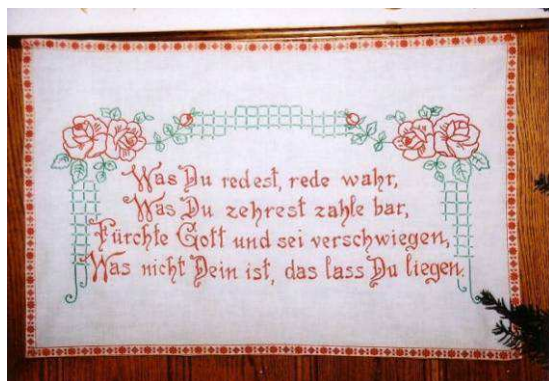 Was Du redest, rede wahr,
Was Du zehrest zahle bar,
Fürchte Gott und sei verschwiegen,
Was nicht Dein ist, das lass Du liegen.